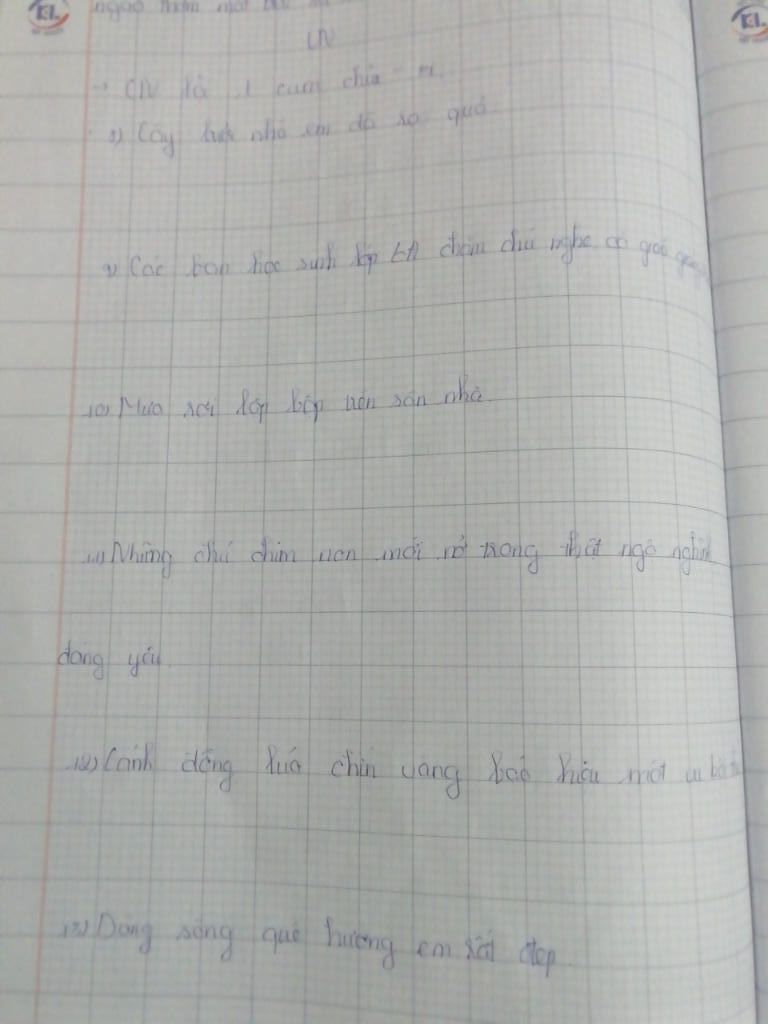 KL
KL
ngào thơm một
CN
→ CN là 1 cụm chủ - vị
8) Cây nhà em đã ra quả.
9) Các bạn học sinh lớp 6A chăm chú nghe cô giáo
10) Mưa rơi lộp bộp trên sân nhà.
11) Những chú chim non mới nở trông thật ngộ nghĩnh
đáng yêu.
12) Cánh đồng lúa chín vàng báo hiệu một
13) Dòng sông quê hương em rất đẹp.